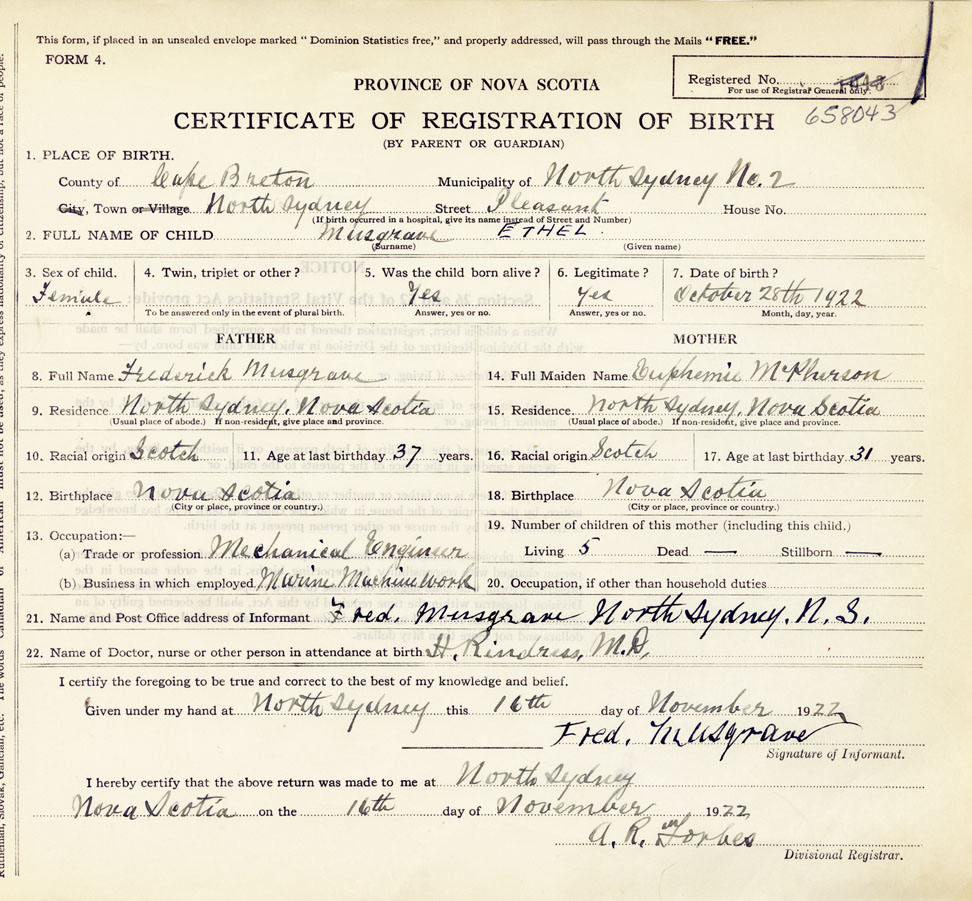 This form, if placed in an unsealed envelope marked "Dominion Statistics free," and properly addressed, will pass through the Mails "FREE."
FORM 4.
Registered No. 1043
For use of Registrar General only.
658043
PROVINCE OF NOVA SCOTIA
CERTIFICATE OF REGISTRATION OF BIRTH
(BY PARENT OR GUARDIAN)
1. PLACE OF BIRTH.
County of Cape Breton Municipality of North Sydney No. 2
City, Town or Village North Sydney Street Pleasant House No.
(If birth occurred in a hospital, give its name instead of Street and Number)
2. FULL NAME OF CHILD Musgrave ETHEL.
(Surname) (Given name)
3. Sex of child. 4. Twin, triplet or other? 5. Was the child born alive? 6. Legitimate? 7. Date of birth?
Female Yes Yes October 28th 1922
To be answered only in the event of plural birth. Answer, yes or no. Answer, yes or no. Month, day, year.
FATHER MOTHER
8. Full Name Frederick Musgrave 14. Full Maiden Name Euphemie McPherson
9. Residence North Sydney, Nova Scotia 15. Residence North Sydney, Nova Scotia
(Usual place of abode.) If non-resident, give place and province. (Usual place of abode.) If non-resident, give place and province.
10. Racial origin Scotch 11. Age at last birthday 37 years. 16. Racial origin Scotch 17. Age at last birthday 31 years.
12. Birthplace Nova Scotia 18. Birthplace Nova Scotia
(City or place, province or country.) (City or place, province or country.)
13. Occupation:— 19. Number of children of this mother (including this child.)
(a) Trade or profession Mechanical Engineer Living 5 Dead — Stillborn —
(b) Business in which employed Marine Machine Work 20. Occupation, if other than household duties
21. Name and Post Office address of Informant Fred. Musgrave North Sydney, N. S.
22. Name of Doctor, nurse or other person in attendance at birth H. Rindress, M.D.
I certify the foregoing to be true and correct to the best of my knowledge and belief.
Given under my hand at North Sydney this 16th day of November 1922
Fred. Musgrave
Signature of Informant.
I hereby certify that the above return was made to me at North Sydney
Nova Scotia on the 16th day of November 1922
A. R. Forbes
Divisional Registrar.